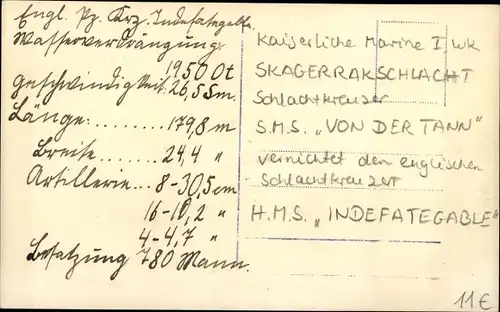 Engl. Pz. Krz. Indefategable.
Wasserverdrängung:
19500 t
Geschwindigkeit: 26,5 Sm.
Länge:.........179,8 m
Breite.........24,4 "
Artillerie...8-30,5 cm
16-10,2 "
4-4,7 "
Besatzung 780 Mann.
Kaiserliche Marine I WK
SKAGERRAKSCHLACHT
Schlachtkreuzer
S.M.S. „VON DER TANN"
vernichtet den englischen
Schlachtkreuzer
H.M.S. „INDEFATEGABLE"
11€